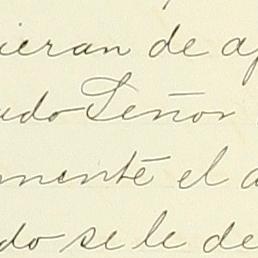 ieran de ap
ado Señor
mente el a
do se le de